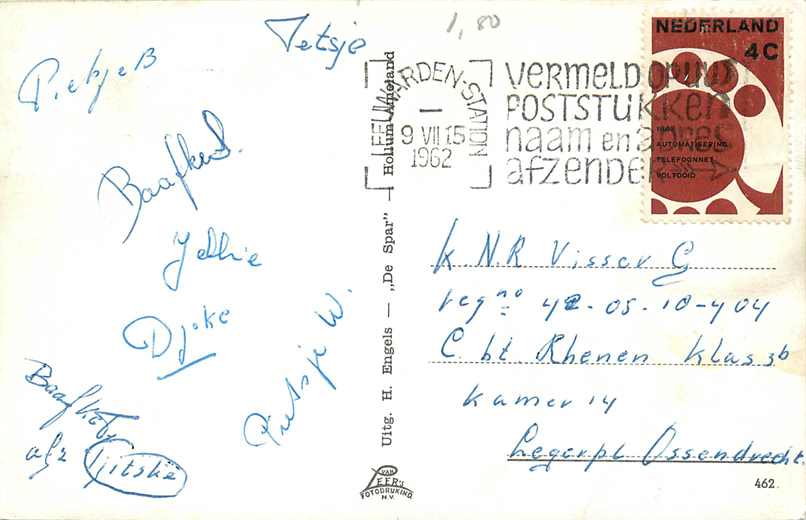 1,80
Tetsje
Pietje B
Baafke S.
Jellie
Dj
Pietsje W.
Baafke
afz Tjitske
Uitg. H. Engels — „De Spar" — Hollum Ameland
VAN LEER'S
FOTODRUKIND.
N.V.
LEEUWARDEN-STATION
9 VII 15
1962
VERMELD OP UW
POSTSTUKKEN
naam en adres
afzender
NEDERLAND
4C
1962
AUTOMATISERING
TELEFOONNET
VOLTOOID
K N.R Visser G
reg no 42-05-10-404
C bt. Rhenen Klas 3b
Kamer 14
Legerpl. Ossendrecht.
462.